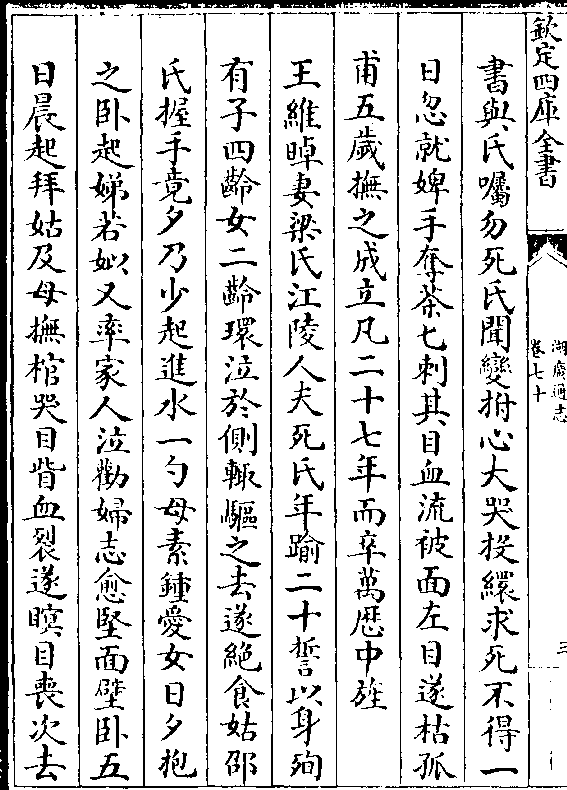 欽定四庫全書
湖廣通志
卷七十
三
書與氏囑勿死氏聞變拊心大哭投繯求死不得一
日忽就婢手奪茶匕刺其目血流被面左目遂枯孤
甫五歲撫之成立凡二十七年而卒萬厯中旌
王維晫妻梁氏江陵人夫死氏年踰二十誓以身殉
有子四齡女二齡環泣於側輒驅之去遂絶食姑邵
氏握手竟夕乃少起進水一勺母素鍾愛女日夕抱
之卧起娣若姒又率家人泣勸婦志愈堅面壁卧五
日晨起拜姑及母撫棺哭目眥血裂遂瞑目喪次去